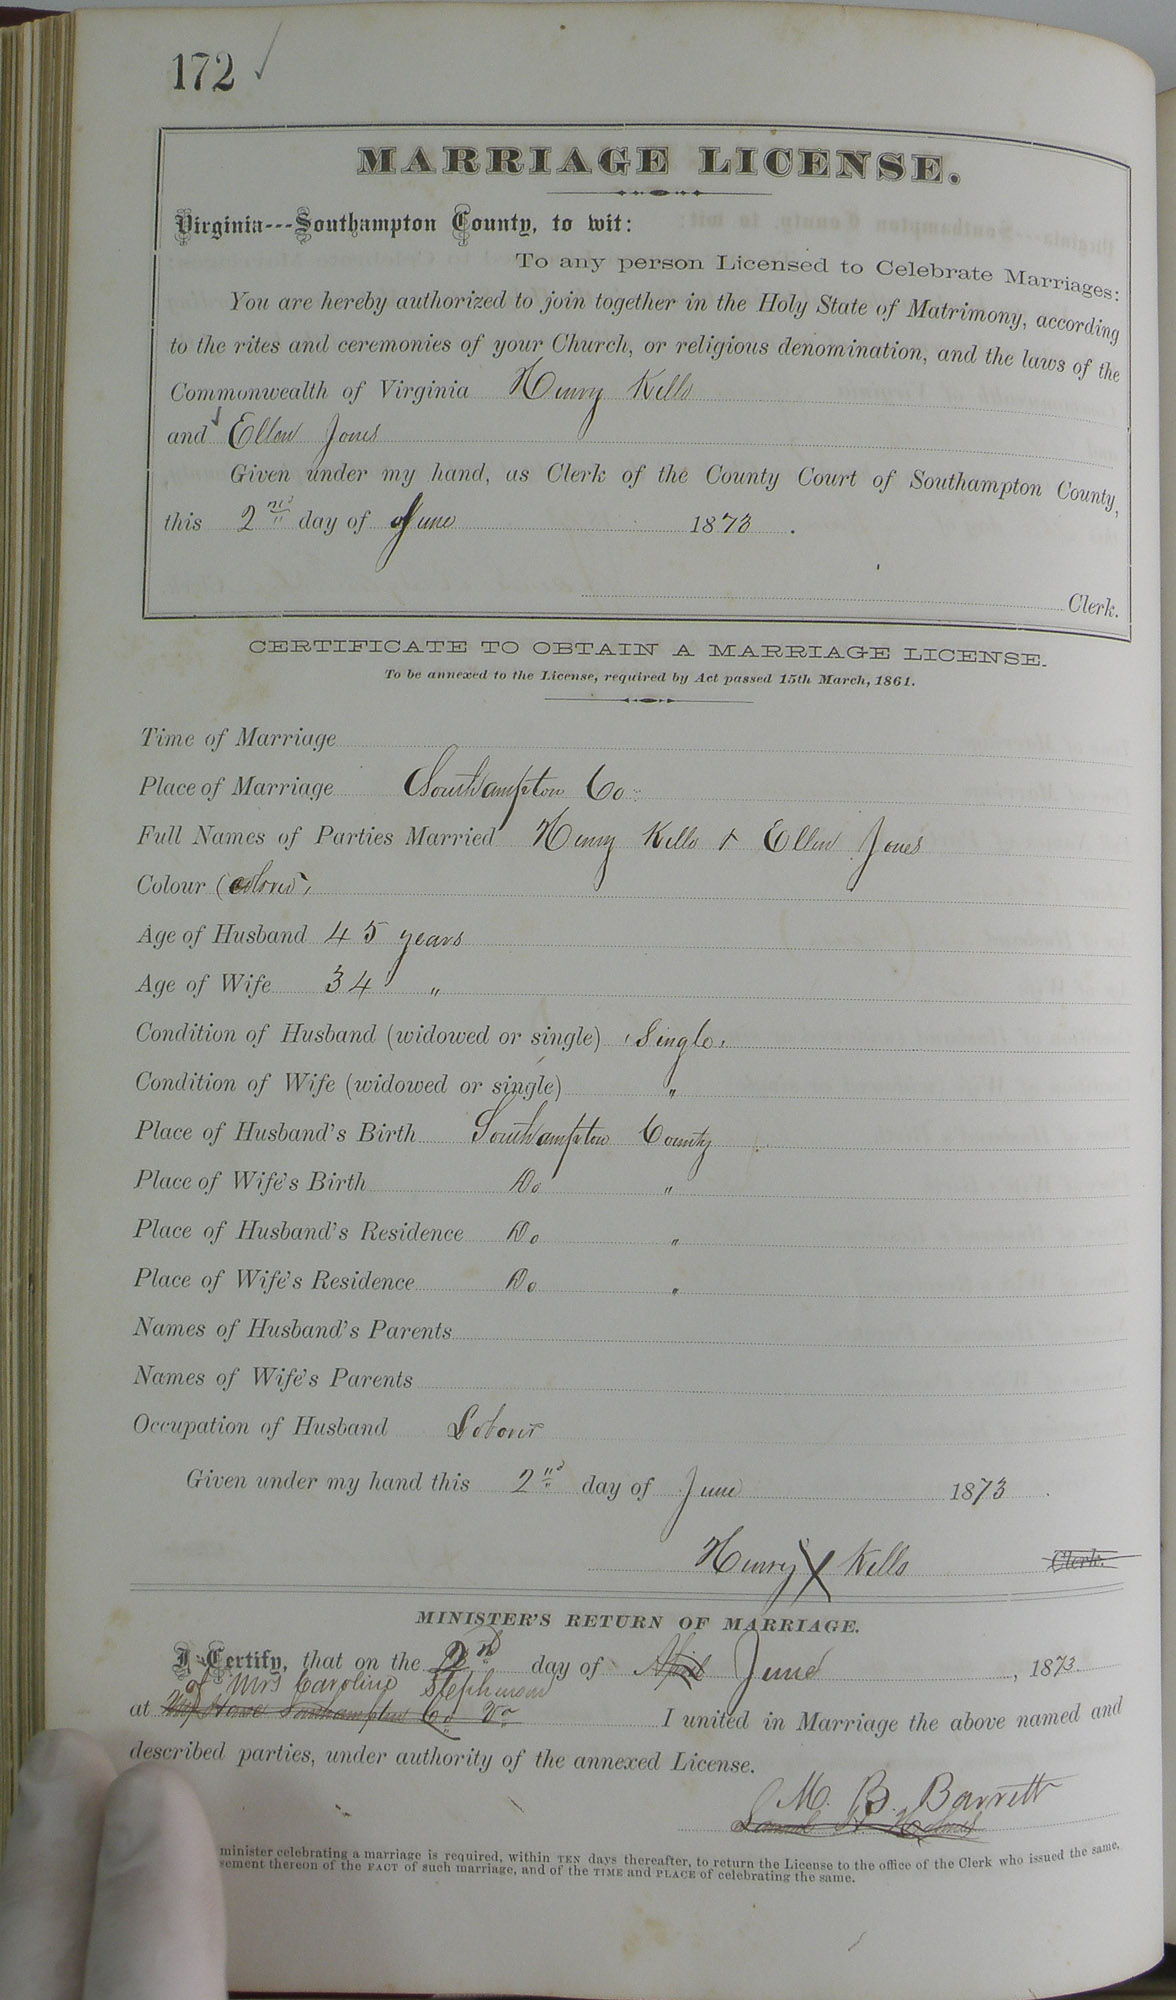 172
MARRIAGE LICENSE.
Virginia---Southampton County, to wit:
To any person Licensed to Celebrate Marriages:
You are hereby authorized to join together in the Holy State of Matrimony, according
to the rites and ceremonies of your Church, or religious denomination, and the laws of the
Commonwealth of Virginia Henry Kello
and Ellen Jones
Given under my hand, as Clerk of the County Court of Southampton County,
this 2nd day of June 1873.
Clerk.
CERTIFICATE TO OBTAIN A MARRIAGE LICENSE.
To be annexed to the License, required by Act passed 15th March, 1861.
Time of Marriage
Place of Marriage Southampton Co
Full Names of Parties Married Henry Kello & Ellen Jones
Colour (colored)
Age of Husband 45 years
Age of Wife 34 "
Condition of Husband (widowed or single) Single
Condition of Wife (widowed or single) "
Place of Husband's Birth Southampton County
Place of Wife's Birth Do "
Place of Husband's Residence Do "
Place of Wife's Residence Do "
Names of Husband's Parents
Names of Wife's Parents
Occupation of Husband
Given under my hand this 2nd day of June 1873.
Henry X Kello Clerk.
MINISTER'S RETURN OF MARRIAGE.
I Certify, that on the 2nd day of April June, 1873.
of Mrs Caroline Stephenson
at Southampton Co Va I united in Marriage the above named and
described parties, under authority of the annexed License.
M. B. Barrett
minister celebrating a marriage is required, within TEN days thereafter, to return the License to the office of the Clerk who issued the same,
sement thereon of the FACT of such marriage, and of the TIME and PLACE of celebrating the same.